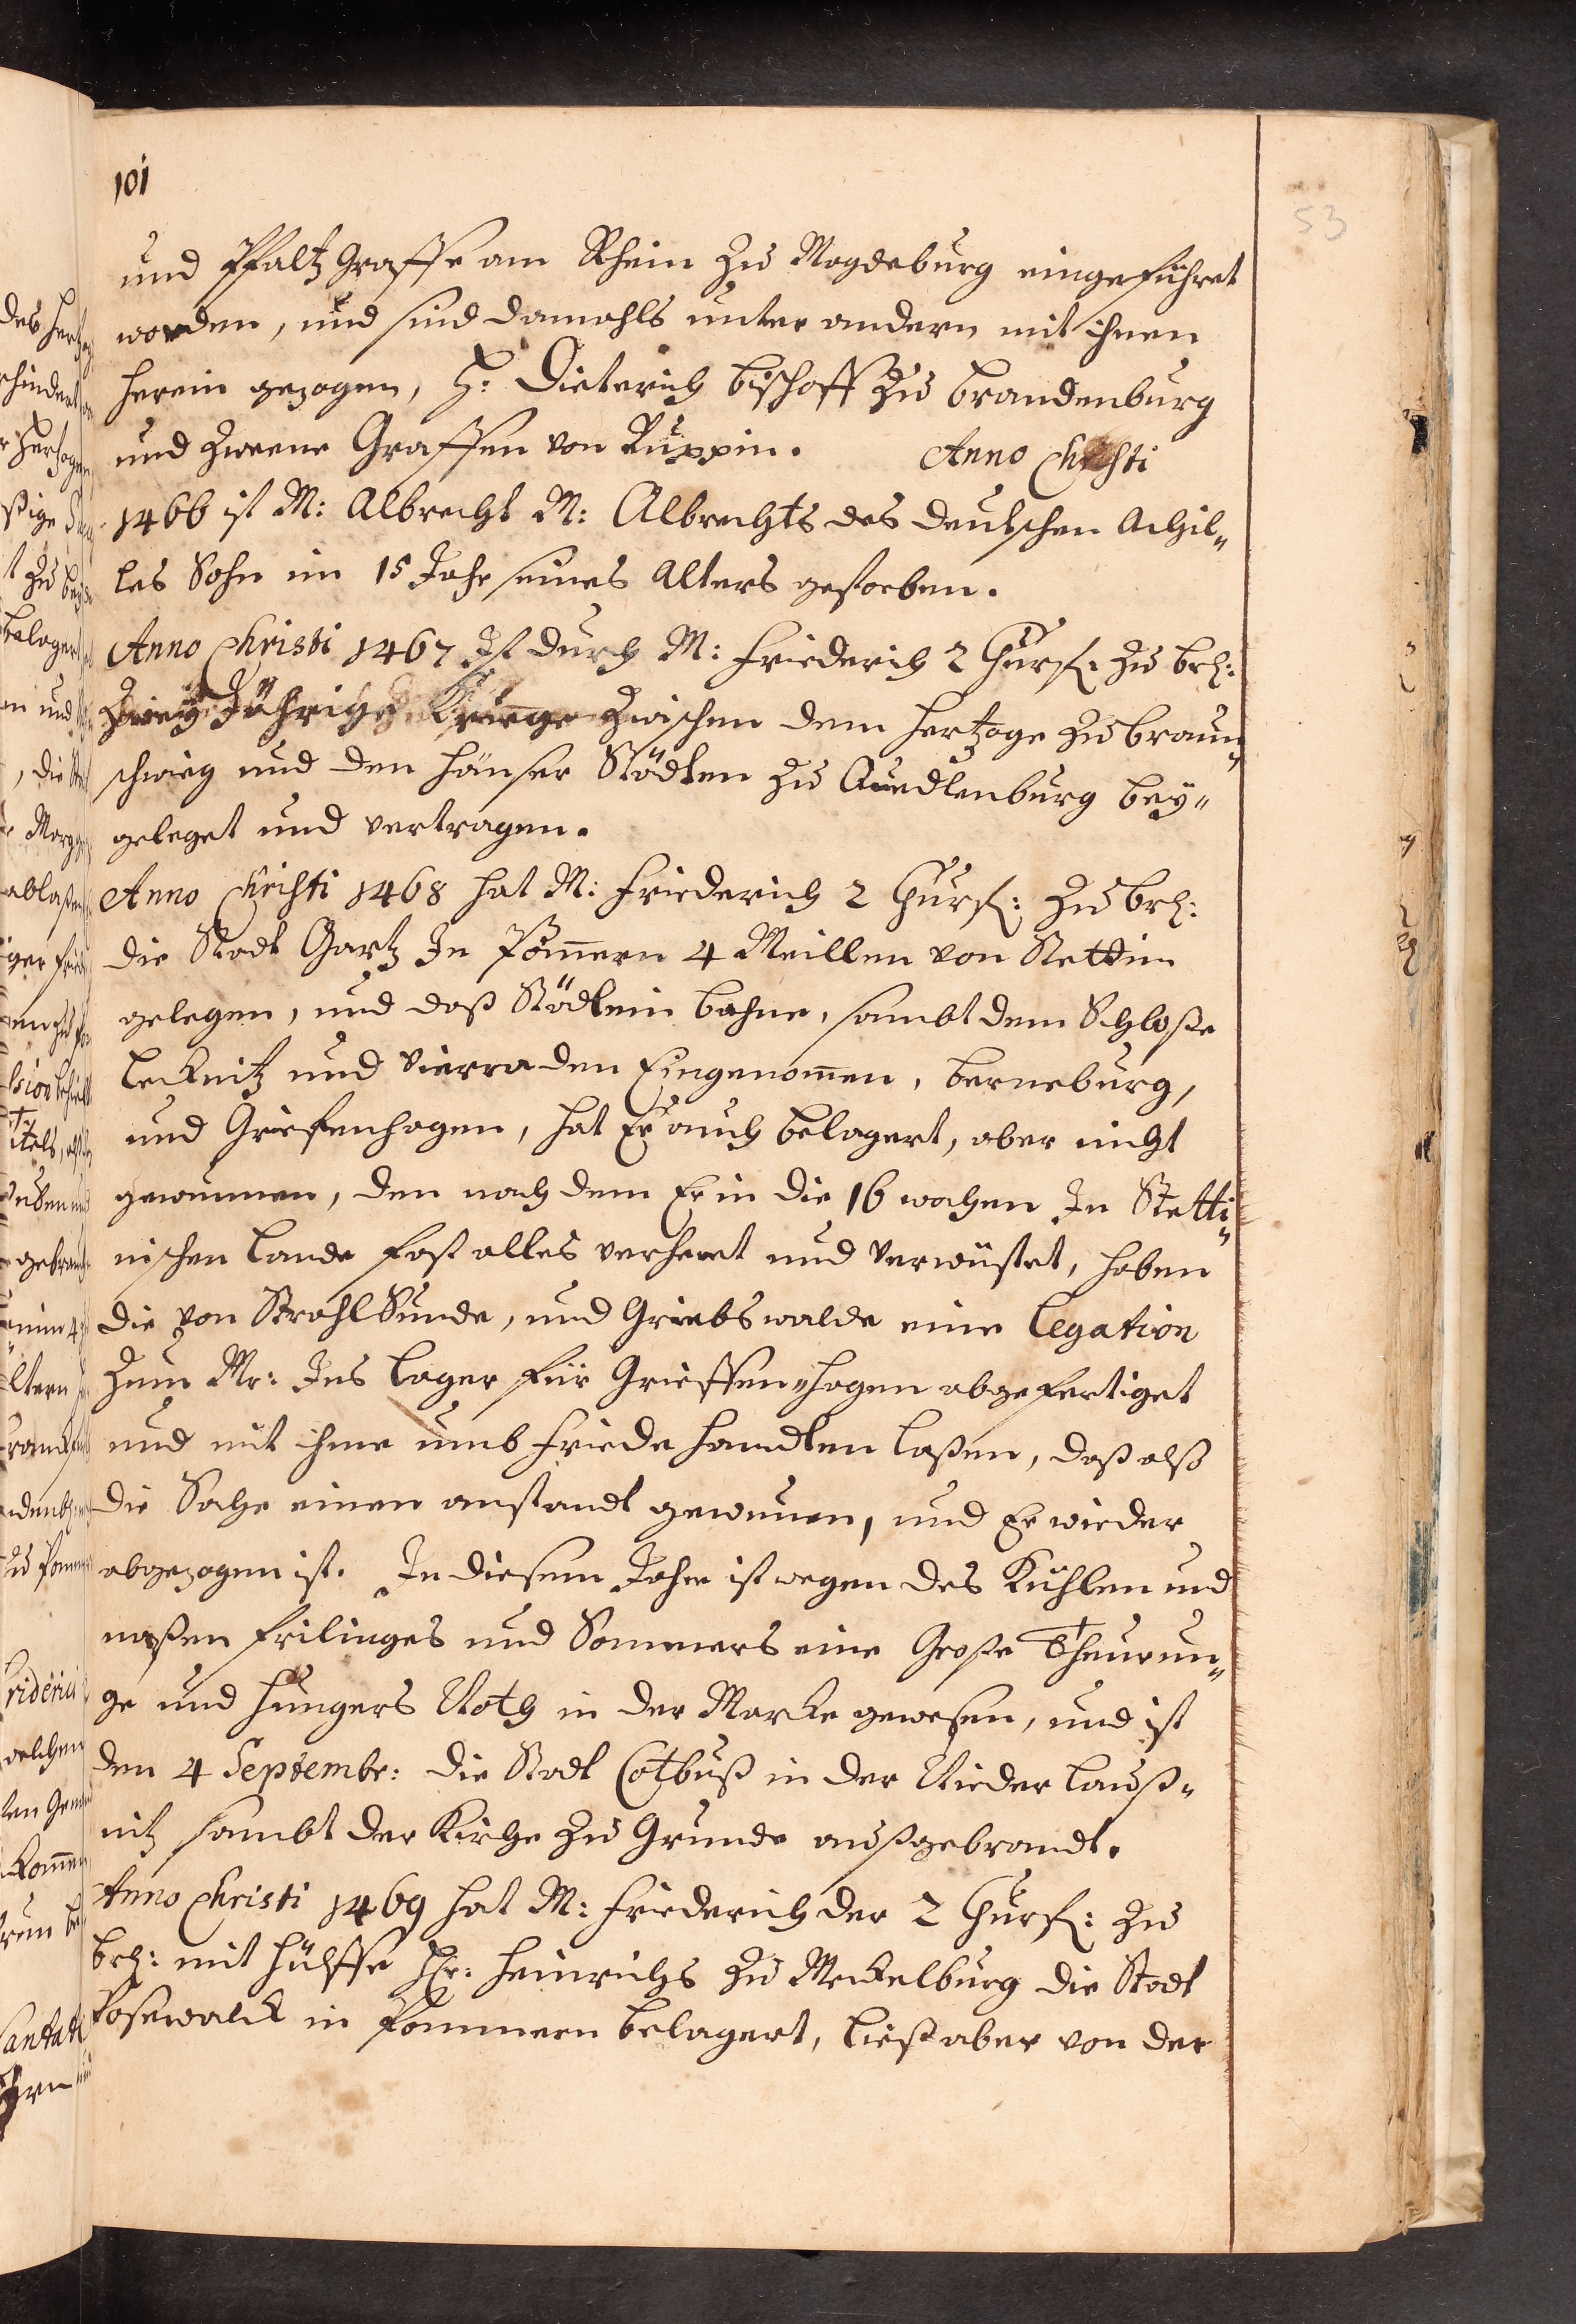 101
53
und Pfaltz Graffe am Rhein zu Magdeburg eingeführet
worden, und sind damahls unter andern mit ihnen
herein gezogen, H: Dieterich Bischoff zu Brandenburg
und zweene Graffen von Ruppin. Anno Christi
1466 ist M: Albrecht M: Albrechts des deutschen Achil„
les Sohn im 15 Jahr seines Alters gestorben.
Anno Christi 1467 Ist durch M: Friederich 2 Churf: zu Brh:
Zweÿ Jährige Kriege zwischen dem Hertzoge zu Braun„
schwieg und den Hänser Städten zu Quedlenburg beÿ„
geleget und vertragen.
Anno Christi 1468 hat M: Friederich 2 Churf: zu Brh:
die Stadt Gartz In Pom̄ern 4 Meillen von Stettin
gelegen, und daß Städtlein Bahne, sambt dem Schloße
Lecknitz und Vierraden Eingenom̄en, Berneburg,
und Griefenhagen, hat Er auch belagert, aber nicht
gewunnen, den nach dem Er in die 16 wochen In Stetti„
nischen Lande fast alles verheret und verwüstet, haben
die von StrahlSunde, und Griebswalde eine Legation
zum Mr: Ins Lager für Grieffen„hagen abgefertiget
und mit ihme umb Friede handlen laßen, daß alß
die Sache einen anstandt gewunnen, und Er wieder
abgezogen ist. In diesem Jahre ist wegen des Kühlen und
naßen Frilinges und Sommers eine Große Theurun„
ge und Hungers Noth in der Marcke gewesen, und ist
den 4 Septembr: die Stadt Cotbuß in der Nieder Lauß„
nitz sambt der Kirche zu Grunde außgebrandt.
Anno Christi 1469 hat M: Friederich der 2 Churf: zu
Brh: mit Hülffe Hr: Heinrichs zu Meckelburg die Stadt
Posewalck in Pommern belagert, ließ aber von der